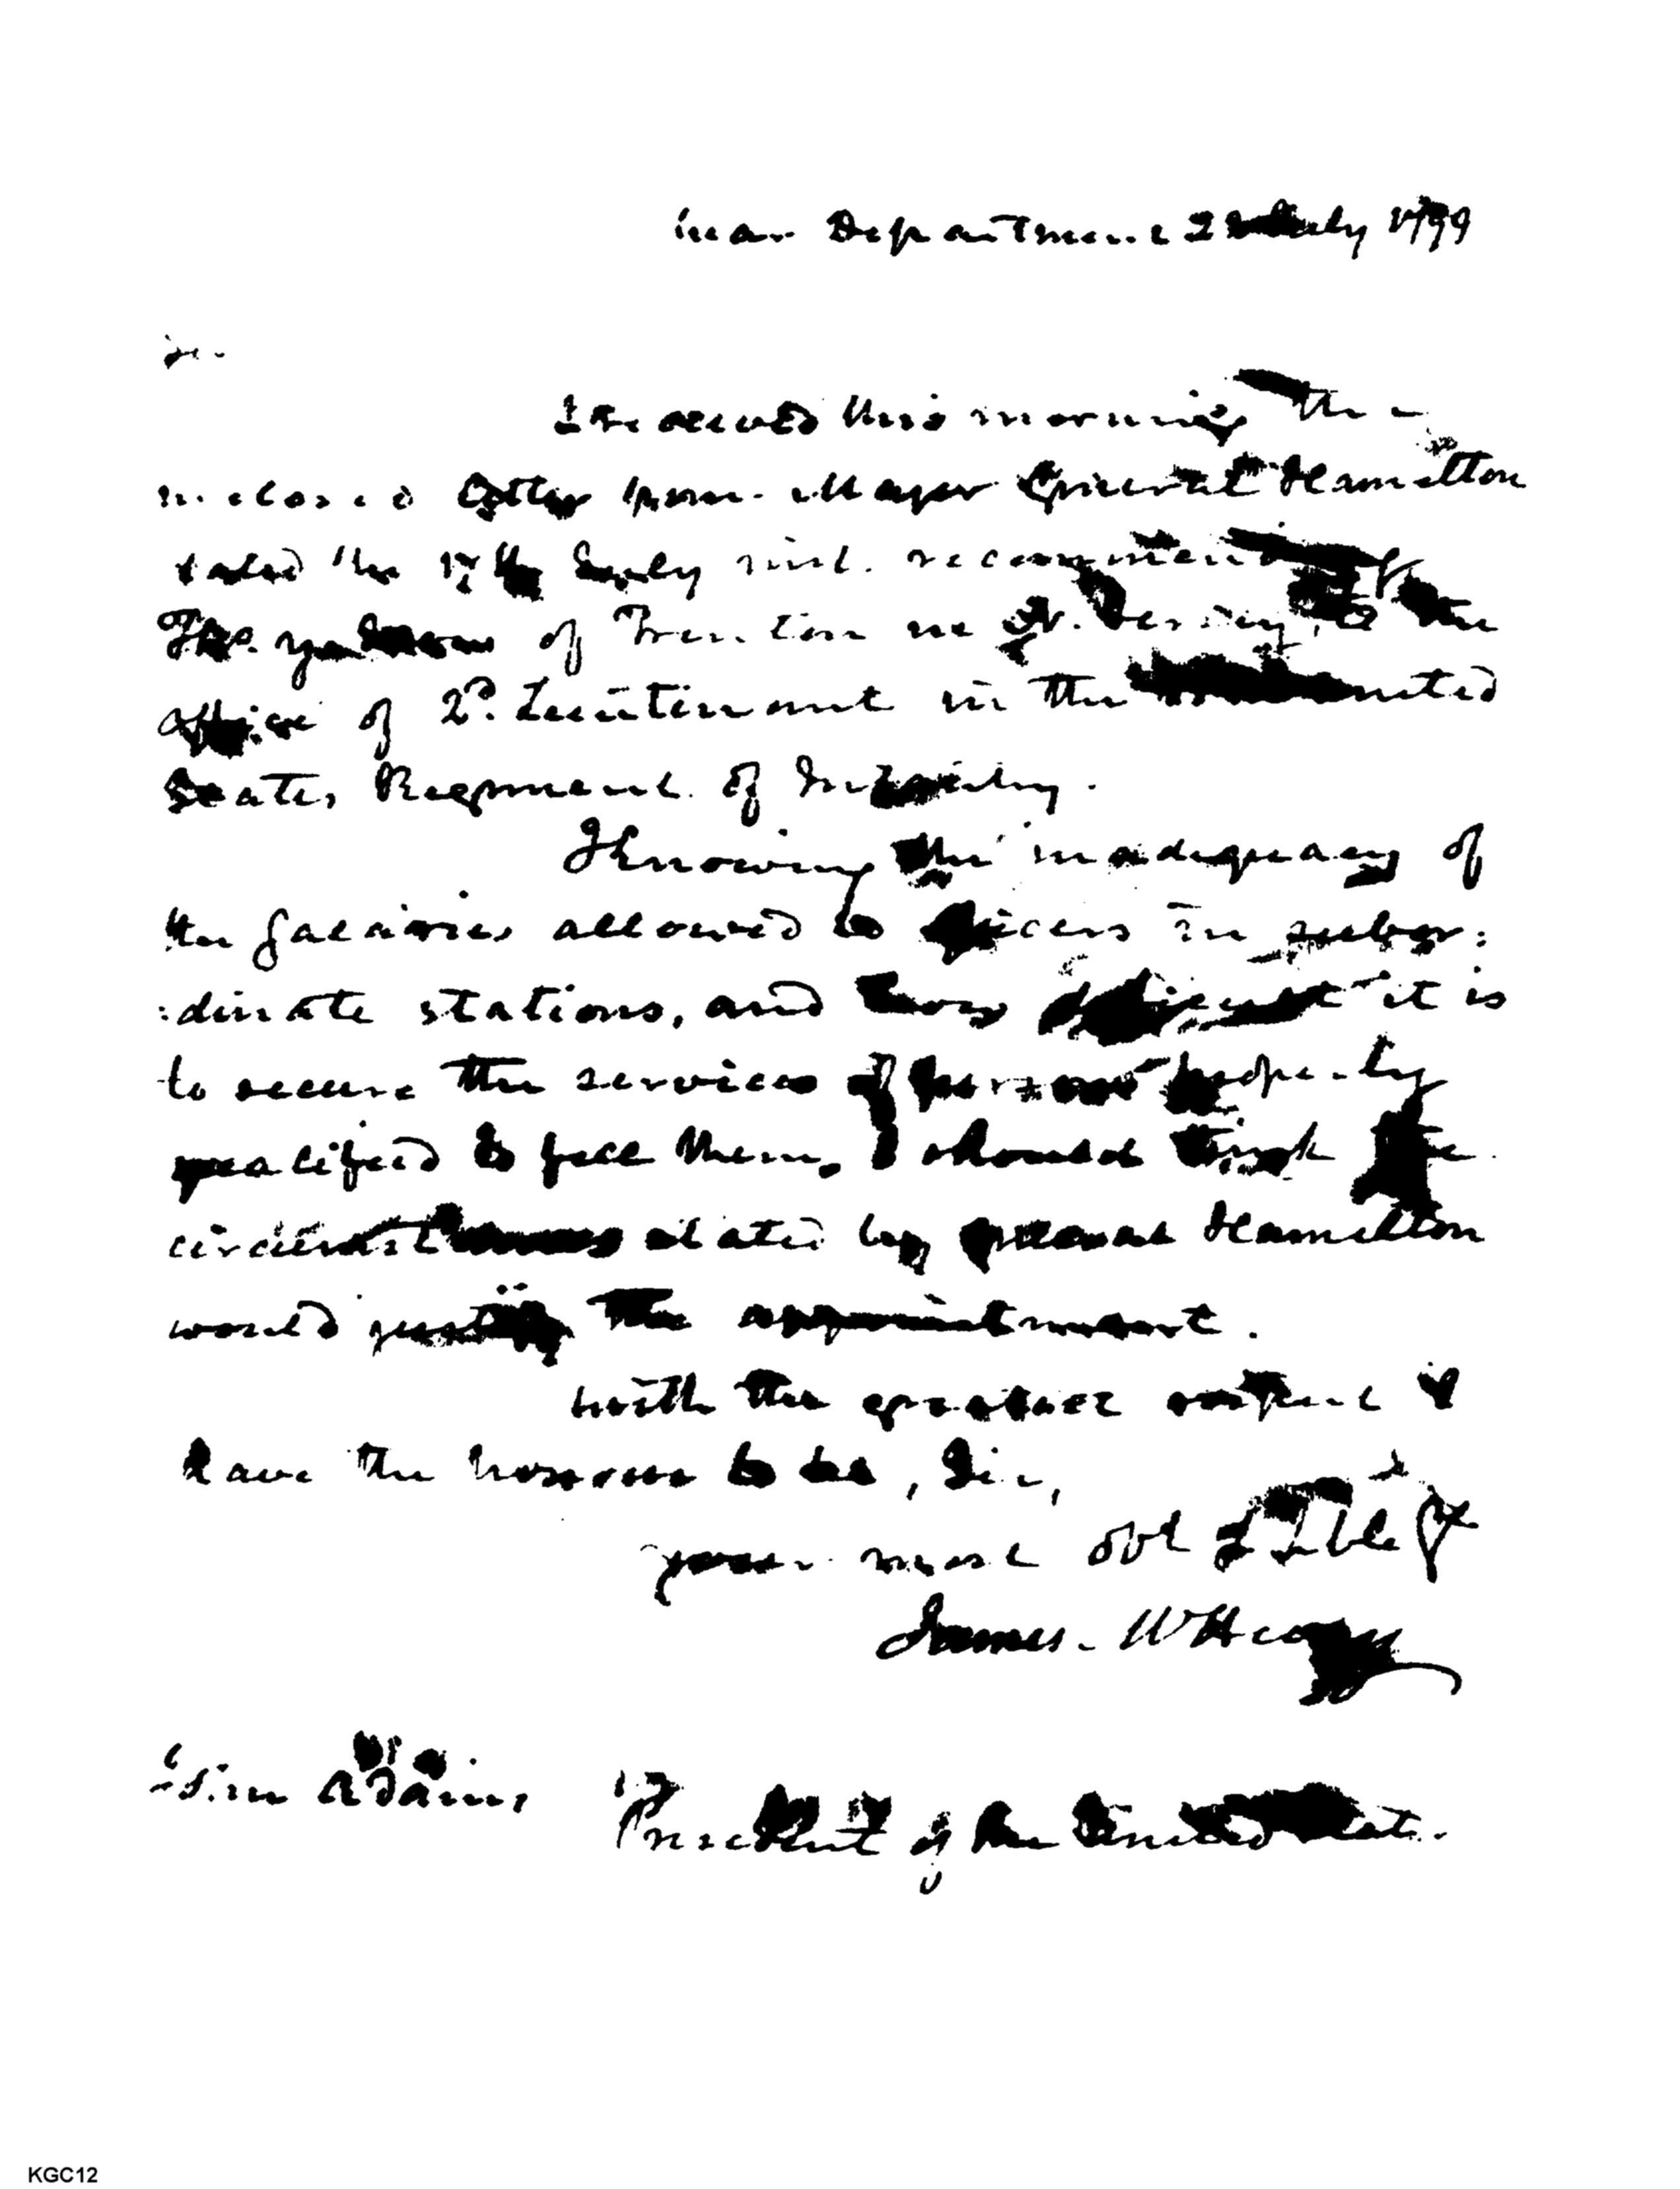 War Department 2 July 1799
Sir
I received this morning the
inclosed letter from Major General Hamilton
dated the 17th July inst. recommending
of Trenton in N. Jersey, to the
office of 2d. Lieutenant in the United
States Regiment of Infantry.
Knowing the inadequacy of
the salaries allowed to officers in subor:
:dinate stations, and how difficult it is
to secure the services of persons properly
qualified to fill them, I should think the
circumstances stated by general Hamilton
would justify the appointment.
With the greatest respect I
have the honour to be, Sir,
your most obt
James McHenry
John Adams, President of the United States.
KGC12